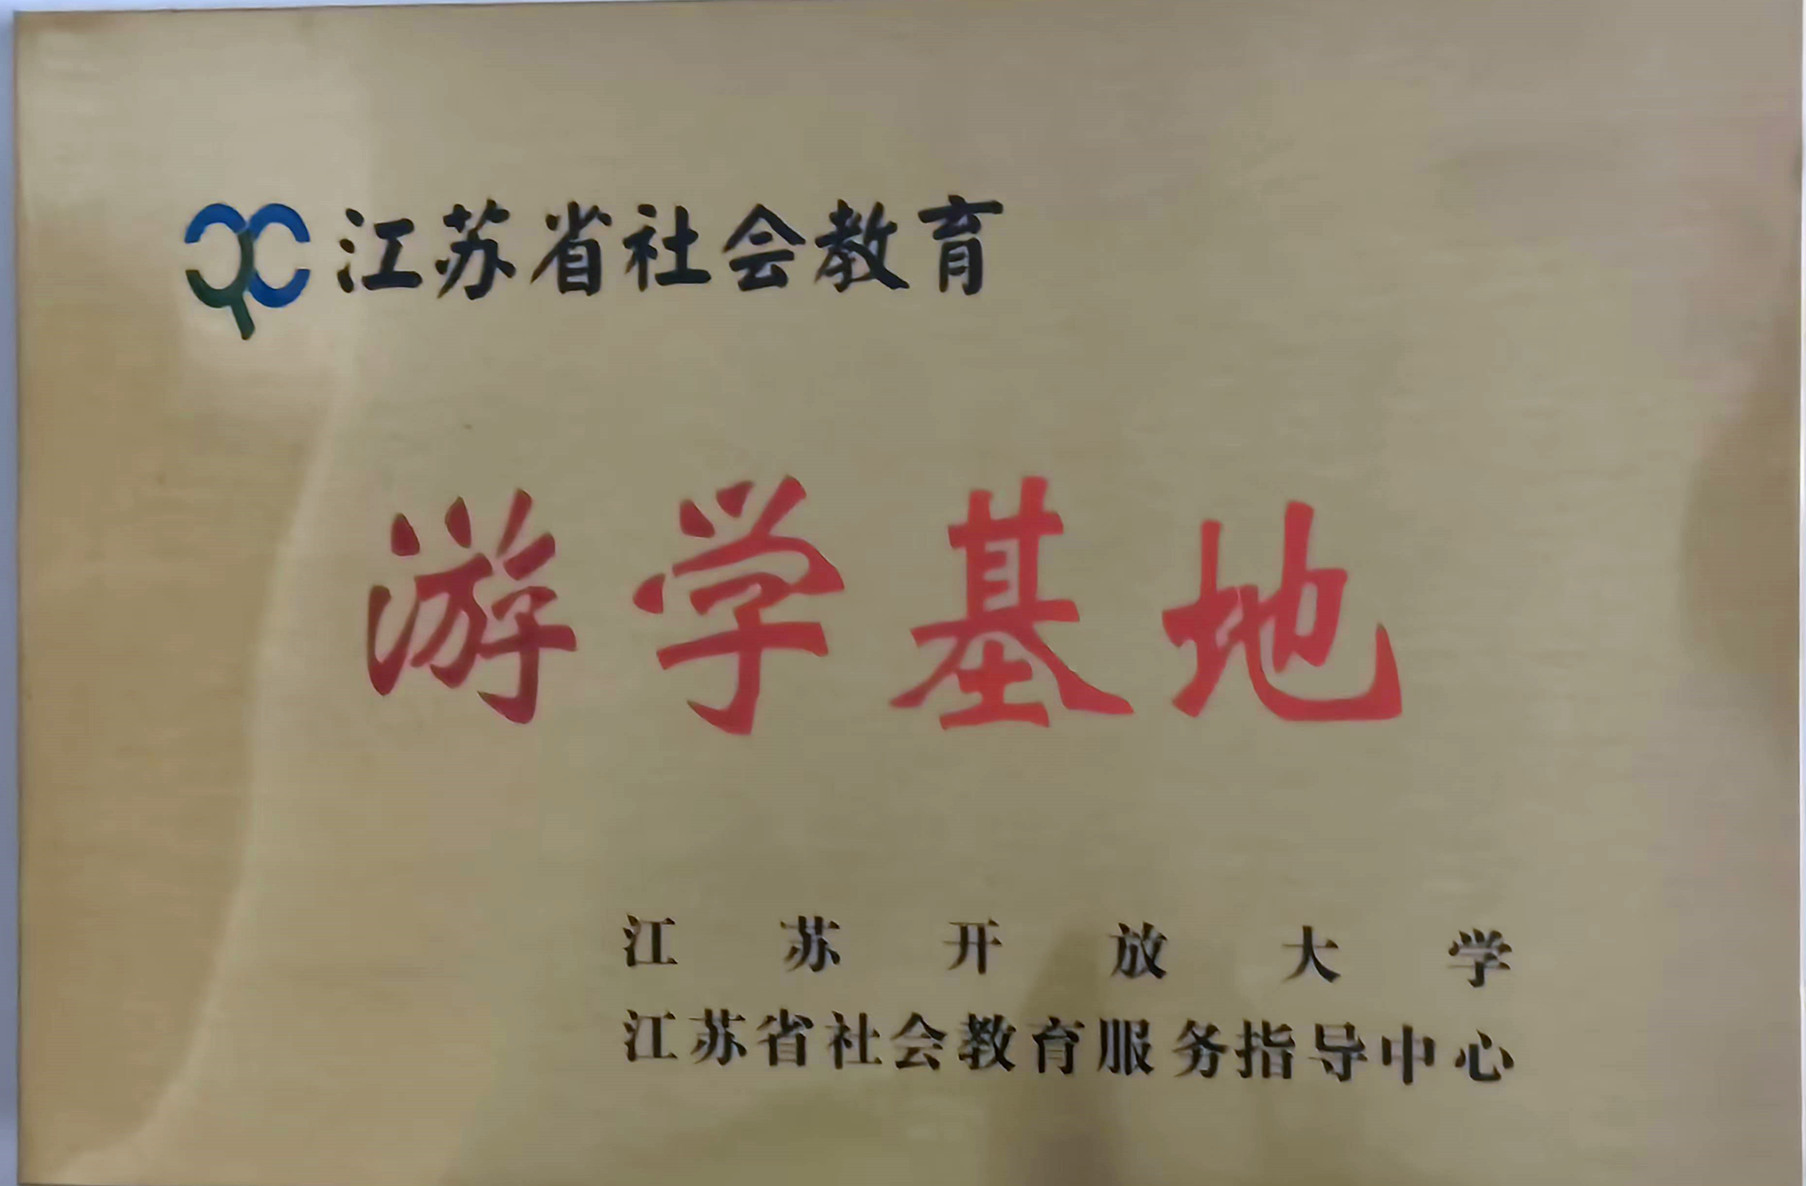 江苏省社会教育
游学基地
江苏开放大学
江苏省社会教育服务指导中心